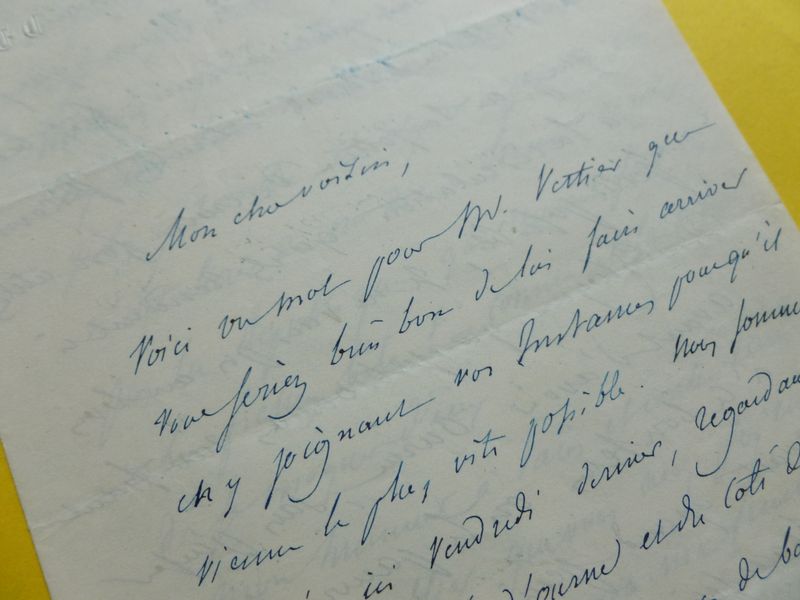 Mon cher voisin,
Voici un mot pour Mr. Vettier que
vous seriez bien bon de lui faire arriver
en y joignant vos Instances pour qu'il
vienne le plus vite possible. Nous somme
ici vendredi dernier, regardan
et du coté d
de